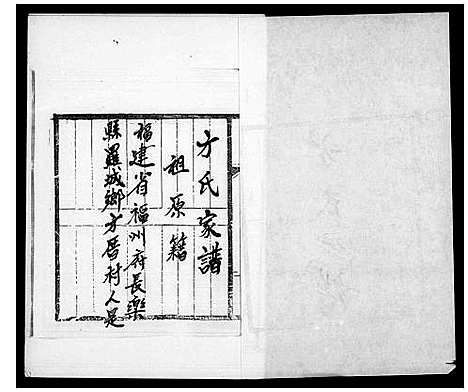 方氏家譜
祖原籍
福建省福州府長樂
縣羅城鄉方厝村人是